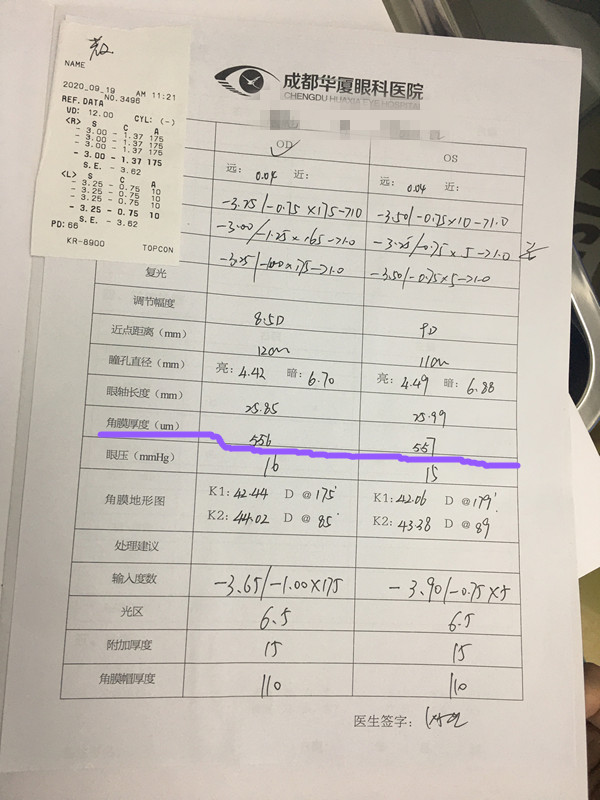 NAME
2020_09_19 AM 11:21
NO.3496
REF.DATA
VD: 12.00 CYL: (-)
<R> S C A
- 3.00 - 1.37 175
- 3.00 - 1.37 175
- 3.00 - 1.37 175
- 3.00 - 1.37 175
S.E. - 3.62
<L> S C A
- 3.25 - 0.75 10
- 3.25 - 0.75 10
- 3.25 - 0.75 10
- 3.25 - 0.75 10
S.E. - 3.62
PD: 66
KR-8900 TOPCON
成都华厦眼科医院
CHENGDU HUAXIA EYE HOSPITAL
OD OS
远: 0.04 近: 远: 0.04 近:
-3.75/-0.75×175→1.0 -3.50/-0.75×10→1.0
-3.00/-1.25×165→1.0 -3.25/-0.75×5→1.0
复光 -3.25/-1.00×175→1.0 -3.50/-0.75×5→1.0
调节幅度 8.5D 9D
近点距离（mm） 12cm 11cm
瞳孔直径（mm） 亮: 4.42 暗: 6.70 亮: 4.49 暗: 6.88
眼轴长度（mm） 25.85 25.99
角膜厚度（um） 556 557
眼压（mmHg） 16 15
角膜地形图 K1: 42.44 D @ 175° K1: 42.06 D @ 179°
K2: 44.02 D @ 85° K2: 43.38 D @ 89
处理建议
输入度数 -3.65/-1.00×175 -3.90/-0.75×5
光区 6.5 6.5
附加厚度 15 15
角膜帽厚度 110 110
医生签字: